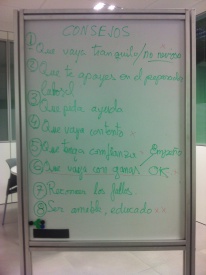 CONSEJOS
① Que vaya tranquilo/no nervioso
② Que te apoyes en el preparador
laboral
③ Que pida ayuda
④ Que vaya contento
⑤ Que tenga confianza
Empeño
⑥ Que vaya con ganas OK
⑦ Reconocer los fallos
⑧ Ser amable, educado